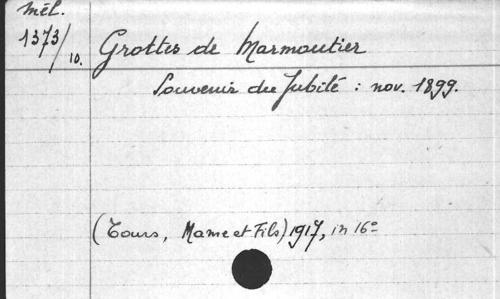 Mél.
1373/10.
Grottes de Marmoutier
Souvenir du Jubilé : nov. 1899.
(Tours, Mame et Fils) 1917, in 16°